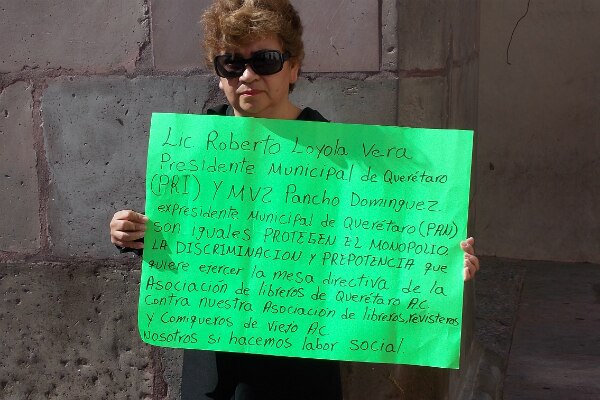 Lic Roberto Loyola Vera
Presidente Municipal de Querétaro
(PRI) Y MVZ Pancho Dominguez
expresidente Municipal de Querétaro (PAN)
son iguales PROTEGEN EL MONOPOLIO.
LA DISCRIMINACION Y PREPOTENCIA que
quiere ejercer la mesa directiva de la
Asociación de libreros de Querétaro AC
Contra nuestra Asociación de libreros, revisteros
y Comiqueros de viejo AC
Nosotros si hacemos labor social.